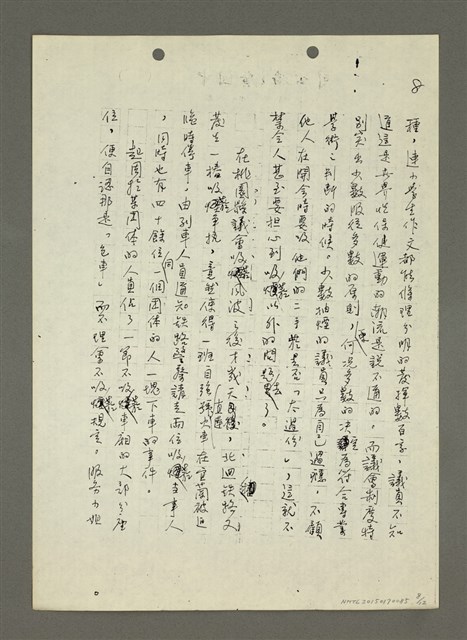 8
種,連小學生作文都能條理分明的發揮數百言,議員不知
道這是世界性保健運動的潮流是說不通的,而議會制度特
別突出少數服從多數的原則,何況多數的決定為符合專業
學術之判斷的時候。少數抽煙的議員只為自己過癮,不顧
他人在開會時要吸他們的二手煙是否「太過份」,這就不
禁令人甚至要担心到吸菸以外的問題去了。
在桃園縣議會吸菸風波之後才幾天,北迴鐵路又
發生一椿吸菸爭執,竟然使得一班自強號火車在宜蘭被迫
臨時停車,由列車人員通知鐵路警察請走兩位吸菸當事人
,同時也有四十餘位同一個團体的人一塊下車的事件。
起因於某團体的人員佔了一節不吸菸車廂的大部分座
位,便自認那是「包車」而不理會不吸菸規定。服務小姐
NMTL20150170085
8/12